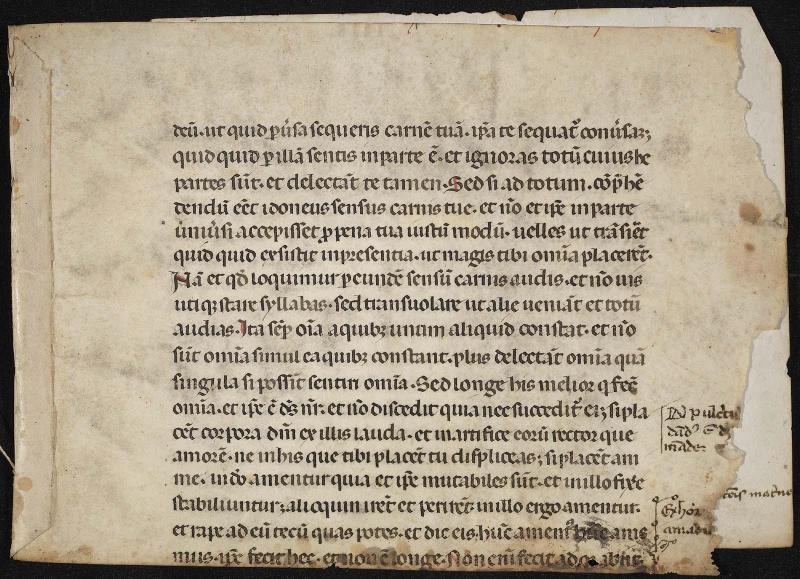 deū. ut quid ꝑuͥsa sequeris carnē tuā. ip̄a te sequat᷑ conuͥsā;
quid quid ꝑ illā sentis in parte ē. et ignoras totū cuius he
partes sūt. et delectāt te tamen. Sed si ad totum. cōp̄hē
dendū eēt idoneus sensus carnis tue. et n̄o et ip̄e in parte
uniuͥsi accepisset ꝓ pena tua iustū modū. uelles ut trāsiēt
quid quid existit in presentia. ut magis tibi om̄ia placerēt.
Nā et qd̄ loquimur ꝑ eundē sensū carnis audis. et n̄o uis
utiqꝫ stare syllabas. sed transuolare ut alie ueniāt et totū
audias. Ita sēꝑ oīa a quibꝫ unum aliquid constat. et n̄o
sūt om̄ia simul ea quibꝫ constant. plus delectāt om̄ia quā
singula si possīt sentiri om̄ia. Sed longe his melior q̄ fec̄
om̄ia. et ip̄e ē ds̄ nr̄. et n̄o discedit quia nec succedit᷑ ei; si pla
cēt corpora dm̄ ex illis lauda. et in artifice eorū rector que
amorē. ne in his que tibi placēt tu displiceas; si placēt am
me. in do᷑ amentur quia et ip̄e mutabiles sūt. et in illo fixe
stabiliuntur; alioquin irēt et perirēt. in illo ergo amentur.
et rape ad eū tecū quas potes. et dic eis. hūc amem᷑ hūc ame
mus. ip̄e fecit hec. et non ē longe. Non enī fecit adq̄ abiit.